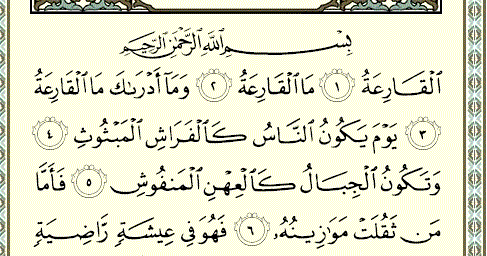 بِسْمِ ٱللَّهِ ٱلرَّحْمَٰنِ ٱلرَّحِيمِ
ٱلْقَارِعَةُ ١ مَا ٱلْقَارِعَةُ ٢ وَمَآ أَدْرَىٰكَ مَا ٱلْقَارِعَةُ
٣ يَوْمَ يَكُونُ ٱلنَّاسُ كَٱلْفَرَاشِ ٱلْمَبْثُوثِ ٤
وَتَكُونُ ٱلْجِبَالُ كَٱلْعِهْنِ ٱلْمَنفُوشِ ٥ فَأَمَّا
مَن ثَقُلَتْ مَوَٰزِينُهُۥ ٦ فَهُوَ فِى عِيشَةٍ رَّاضِيَةٍ